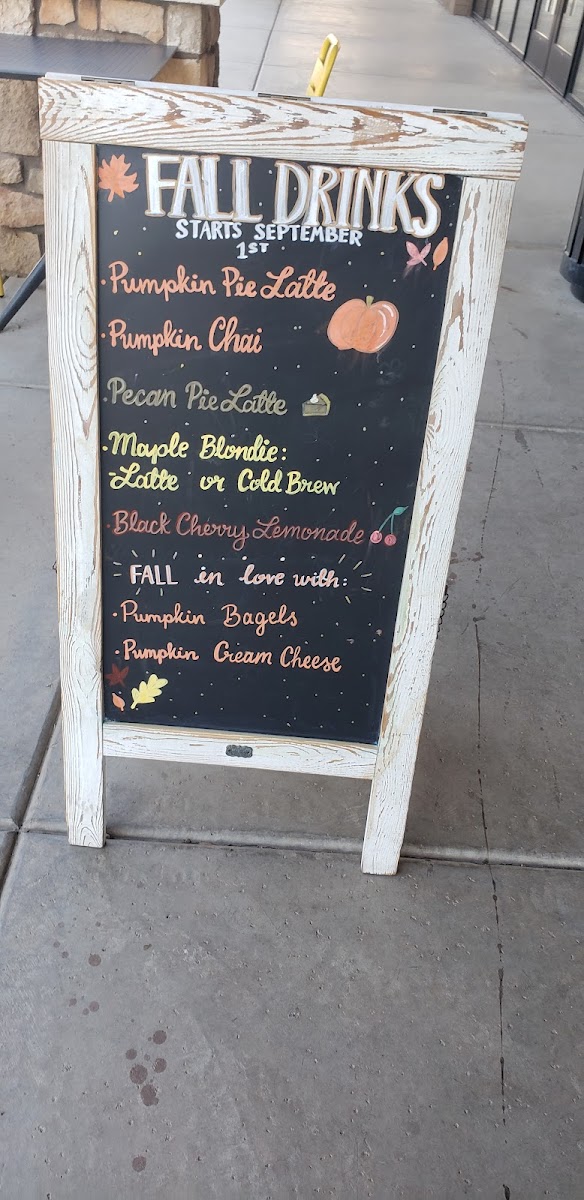 FALL DRINKS
STARTS SEPTEMBER
1ST
·Pumpkin Pie Latte
·Pumpkin Chai
·Pecan Pie Latte
·Maple Blondie:
-Latte or Cold Brew
·Black Cherry Lemonade
FALL in love with:
·Pumpkin Bagels
·Pumpkin Cream Cheese